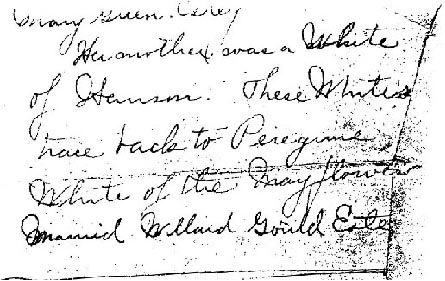 Her mother was a White
of Hanson. These Whites
trace back to Peregrine
White of the Mayflower
married Willard Gould Este